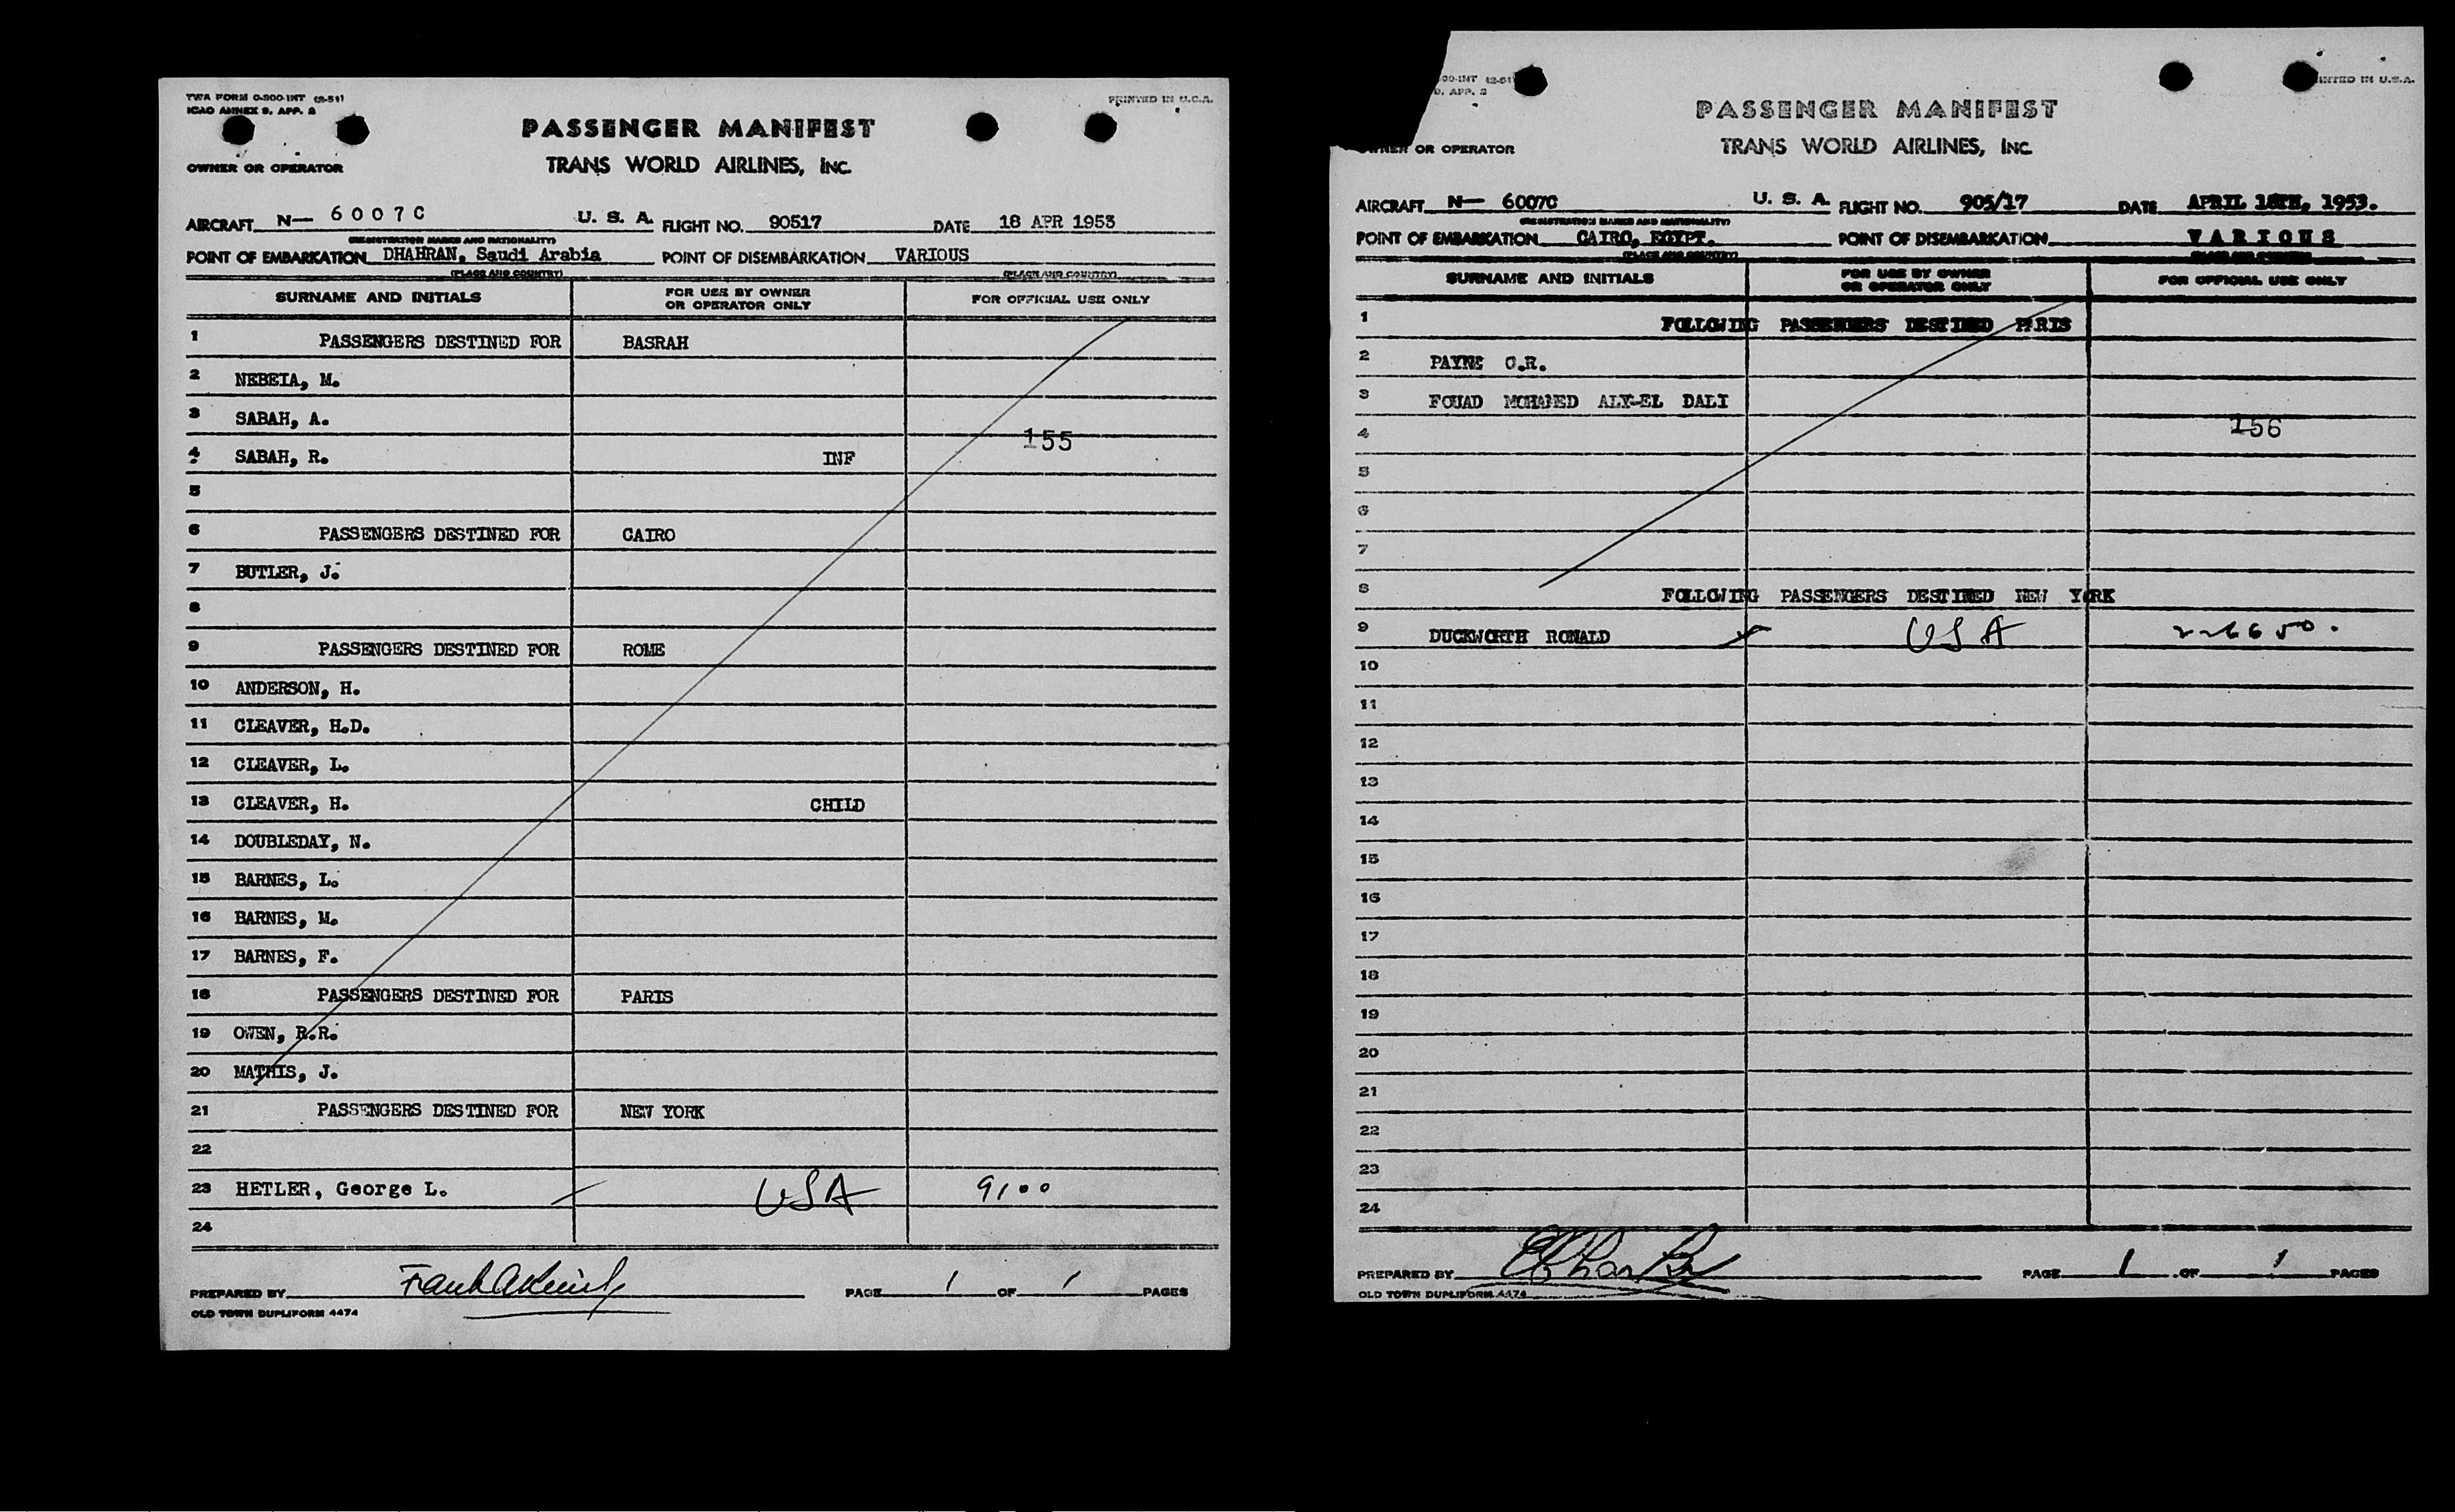 TWA FORM O-800-INT (2-51)
ICAO ANNEX 9, APP. 2
PRINTED IN U.S.A.
PASSENGER MANIFEST
TRANS WORLD AIRLINES, INC.
OWNER OR OPERATOR
AIRCRAFT N— 6007C U. S. A. FLIGHT NO. 90517 DATE 18 APR 1953
(REGISTRATION MARKS AND NATIONALITY)
POINT OF EMBARKATION DHAHRAN, Saudi Arabia POINT OF DISEMBARKATION VARIOUS
(PLACE AND COUNTRY) (PLACE AND COUNTRY)
SURNAME AND INITIALS FOR USE BY OWNER OR OPERATOR ONLY FOR OFFICIAL USE ONLY
1 PASSENGERS DESTINED FOR BASRAH
2 NEBEIA, M.
3 SABAH, A.
155
4 SABAH, R. INF
5
6 PASSENGERS DESTINED FOR CAIRO
7 BUTLER, J.
8
9 PASSENGERS DESTINED FOR ROME
10 ANDERSON, H.
11 CLEAVER, H.D.
12 CLEAVER, L.
13 CLEAVER, H. CHILD
14 DOUBLEDAY, N.
15 BARNES, L.
16 BARNES, M.
17 BARNES, F.
18 PASSENGERS DESTINED FOR PARIS
19 OWEN, R.R.
20 MATHIS, J.
21 PASSENGERS DESTINED FOR NEW YORK
22
23 HETLER, George L. USA 9100
24
PREPARED BY PAGE 1 OF 1 PAGES
OLD TOWN DUPLIFORM 4474
00-INT (2-51)
9, APP. 2
PRINTED IN U.S.A.
PASSENGER MANIFEST
TRANS WORLD AIRLINES, INC.
OWNER OR OPERATOR
AIRCRAFT N— 6007C U. S. A. FLIGHT NO. 905/17 DATE APRIL 18TH, 1953.
(REGISTRATION MARKS AND NATIONALITY)
POINT OF EMBARKATION CAIRO, EGYPT. POINT OF DISEMBARKATION VARIOUS
(PLACE AND COUNTRY)
SURNAME AND INITIALS FOR USE BY OWNER OR OPERATOR ONLY FOR OFFICIAL USE ONLY
1 FOLLOWING PASSENGERS DESTINED PARIS
2 PAYNE O.R.
3 FOUAD MOHAMED ALY-EL DALI
4 156
5
6
7
8 FOLLOWING PASSENGERS DESTINED NEW YORK
9 DUCKWORTH RONALD USA
10
11
12
13
14
15
16
17
18
19
20
21
22
23
24
PREPARED BY PAGE 1 OF 1 PAGES
OLD TOWN DUPLIFORM 4474